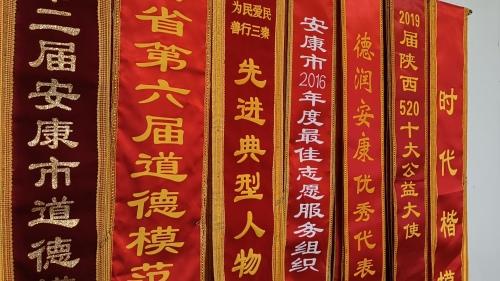 二届安康市道德模
省第六届道德模范
为民爱民
善行三秦
先进典型人物
安康市2016年度最佳志愿服务组织
德润安康优秀代表
2019届陕西520十大公益大使
时代楷模